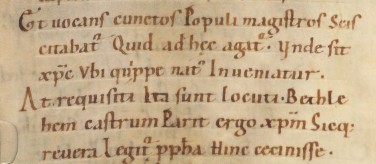 Et vocans cunctos Populi magistros Scis
citabat᷑ Quid ad hęc agat᷑. Vnde sit
xp̄c Vbi quippe nat᷒ Inueniatur.
At requisita Ita sunt locuti. Bethle
hem castrum Parit ergo xp̄m Sicq;
reuera Legit᷑ ꝓph̄a Hinc cecinisse.